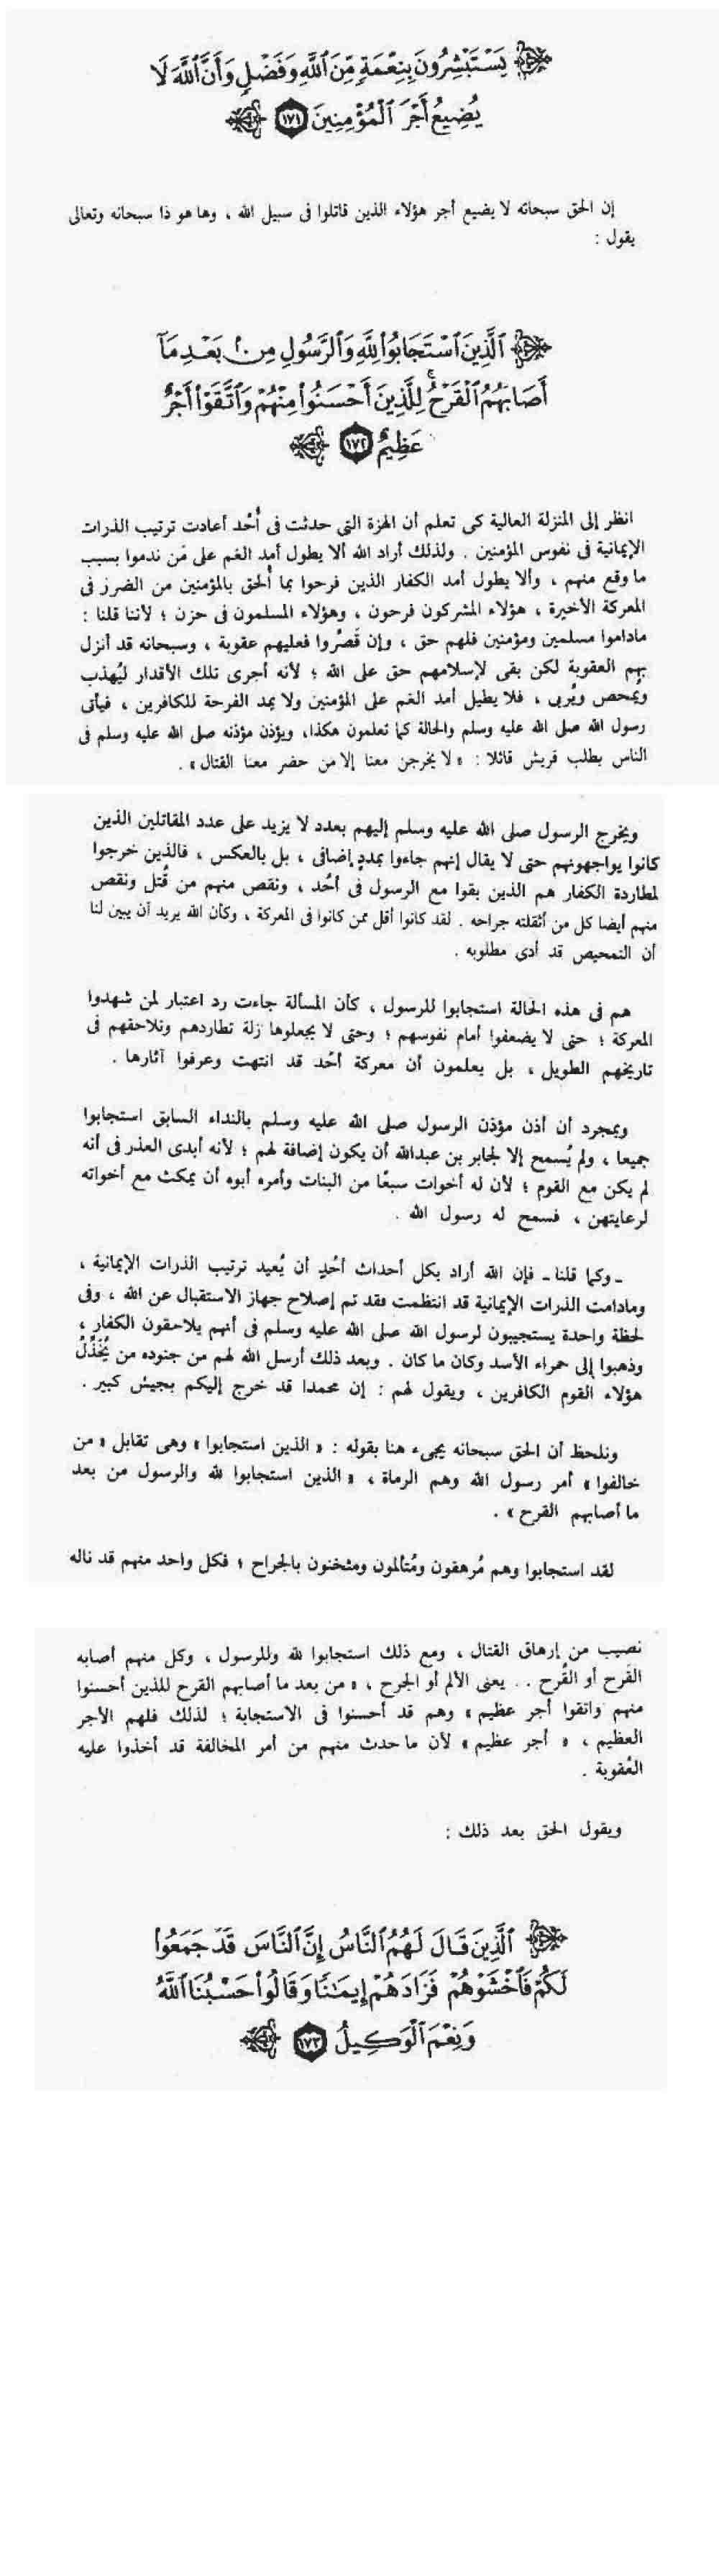 يَسْتَبْشِرُونَ بِنِعْمَةٍ مِّنَ ٱللَّهِ وَفَضْلٍ وَأَنَّ ٱللَّهَ لَا
يُضِيعُ أَجْرَ ٱلْمُؤْمِنِينَ ١٧١
إن الحق سبحانه لا يضيع أجر هؤلاء الذين قاتلوا فى سبيل الله ، وها هو ذا سبحانه وتعالى
يقول :
ٱلَّذِينَ ٱسْتَجَابُوا۟ لِلَّهِ وَٱلرَّسُولِ مِنۢ بَعْدِ مَآ
أَصَابَهُمُ ٱلْقَرْحُ ۚ لِلَّذِينَ أَحْسَنُوا۟ مِنْهُمْ وَٱتَّقَوْا۟ أَجْرٌ
عَظِيمٌ ١٧٢
انظر إلى المنزلة العالية كى تعلم أن الهزة التى حدثت فى أُحُد أعادت ترتيب الذرات
الإيمانية فى نفوس المؤمنين . ولذلك أراد الله ألا يطول أمد الغم على مَن ندموا بسبب
ما وقع منهم ، وألا يطول أمد الكفار الذين فرحوا بما أُلحق بالمؤمنين من الضرر فى
المعركة الأخيرة ، هؤلاء المشركون فرحون ، وهؤلاء المسلمون فى حزن ؛ لأننا قلنا :
ماداموا مسلمين ومؤمنين فلهم حق ، وإن قَصَّروا فعليهم عقوبة ، وسبحانه قد أنزل
بهم العقوبة لكن بقى لإسلامهم حق على الله ؛ لأنه أجرى تلك الأقدار ليُهذب
ويُمحص ويُربى ، فلا يطيل أمد الغم على المؤمنين ولا يمد الفرحة للكافرين ، فيأتى
رسول الله صلى الله عليه وسلم والحالة كما تعلمون هكذا، ويؤذن مؤذنه صلى الله عليه وسلم فى
الناس بطلب قريش قائلا : « لا يخرجن معنا إلا من حضر معنا القتال » .
ويخرج الرسول صلى الله عليه وسلم إليهم بعدد لا يزيد على عدد المقاتلين الذين
كانوا يواجهونهم حتى لا يقال إنهم جاءوا بمددٍ إضافى ، بل بالعكس ، فالذين خرجوا
لمطاردة الكفار هم الذين بقوا مع الرسول فى أُحُد ، ونقص منهم من قُتل ونقص
منهم أيضا كل من أثقلته جراحه . لقد كانوا أقل ممن كانوا فى المعركة ، وكأن الله يريد أن يبين لنا
أن التمحيص قد أدى مطلوبه .
هم فى هذه الحالة استجابوا للرسول ، كأن المسألة جاءت رد اعتبار لمن شهدوا
المعركة ؛ حتى لا يضعفوا أمام نفوسهم ؛ وحتى لا يجعلوها زلة تطاردهم وتلاحقهم فى
تاريخهم الطويل ، بل يعلمون أن معركة أُحُد قد انتهت وعرفوا آثارها .
وبمجرد أن أذن مؤذن الرسول صلى الله عليه وسلم بالنداء السابق استجابوا
جميعا ، ولم يُسمح إلا لجابر بن عبدالله أن يكون إضافة لهم ؛ لأنه أبدى العذر فى أنه
لم يكن مع القوم ؛ لأن له أخوات سبعًا من البنات وأمره أبوه أن يمكث مع أخواته
لرعايتهن ، فسمح له رسول الله .
- وكما قلنا - فإن الله أراد بكل أحداث أُحُدٍ أن يُعيد ترتيب الذرات الإيمانية ،
ومادامت الذرات الإيمانية قد انتظمت فقد تم إصلاح جهاز الاستقبال عن الله ، وفى
لحظة واحدة يستجيبون لرسول الله صلى الله عليه وسلم فى أنهم يلاحقون الكفار ،
وذهبوا إلى حمراء الأسد وكان ما كان . وبعد ذلك أرسل الله لهم من جنوده من يُخَذِّلُ
هؤلاء القوم الكافرين ، ويقول لهم : إن محمدا قد خرج إليكم بجيش كبير .
ونلحظ أن الحق سبحانه يجىء هنا بقوله : « الذين استجابوا » وهى تقابل « من
خالفوا » أمر رسول الله وهم الرماة ، « الذين استجابوا لله والرسول من بعد
ما أصابهم القرح » .
لقد استجابوا وهم مُرهقون ومُتألمون ومثخنون بالجراح ؛ فكل واحد منهم قد ناله
نصيب من إرهاق القتال ، ومع ذلك استجابوا لله وللرسول ، وكل منهم أصابه
القَرح أو القُرح . . يعنى الألم أو الجرح ، « من بعد ما أصابهم القرح للذين أحسنوا
منهم واتقوا أجر عظيم » وهم قد أحسنوا فى الاستجابة ؛ لذلك فلهم الأجر
العظيم ، « أجر عظيم » لأن ما حدث منهم من أمر المخالفة قد أخذوا عليه
العُقوبة .
ويقول الحق بعد ذلك :
ٱلَّذِينَ قَالَ لَهُمُ ٱلنَّاسُ إِنَّ ٱلنَّاسَ قَدْ جَمَعُوا۟
لَكُمْ فَٱخْشَوْهُمْ فَزَادَهُمْ إِيمَٰنًا وَقَالُوا۟ حَسْبُنَا ٱللَّهُ
وَنِعْمَ ٱلْوَكِيلُ ١٧٣